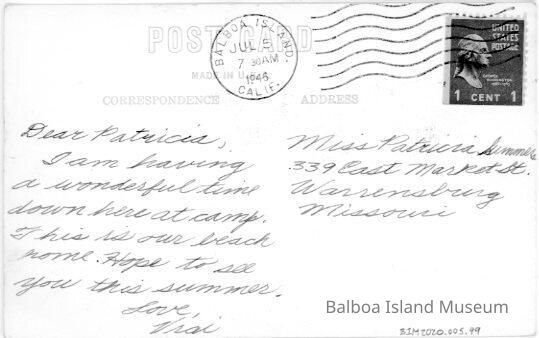 POST CARD
BALBOA ISLAND
JUL 5
7 30AM
1946
CALIF.
UNITED
STATES
POSTAGE
1 CENT 1
MADE IN U.S.A.
CORRESPONDENCE
ADDRESS
Dear Patricia,
I am having
a wonderful time
down here at camp.
This is our beach
home. Hope to see
you this summer.
Love,
Miss Patricia Summers
339 East Market St.
Warrensburg
Missouri
Balboa Island Museum
BIM2020.005.99